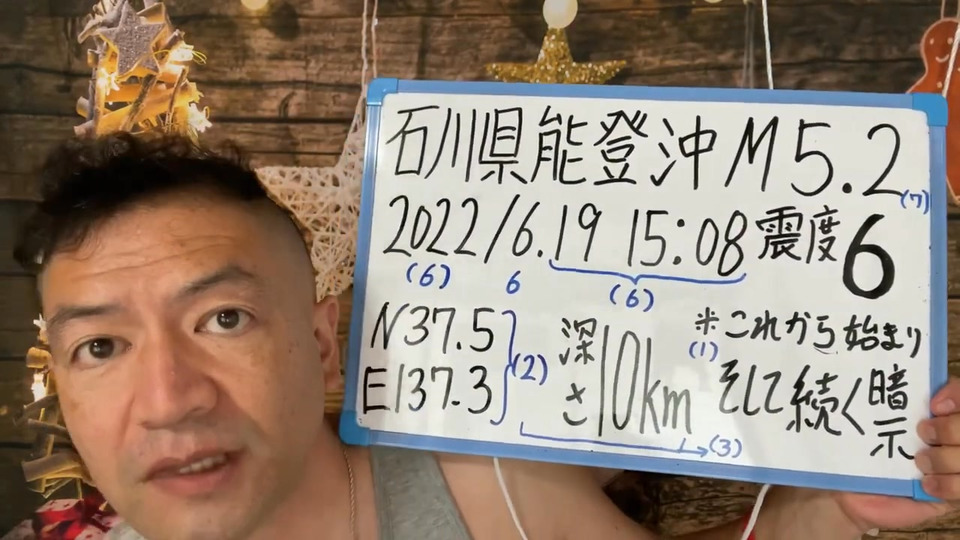 石川県能登沖 M5.2
(7)
2022/6.19 15:08 震度6
(6) 6 (6)
N37.5
E137.3
(2)
深さ10km
(3)
※これから始まり
(1)
そして続く暗示